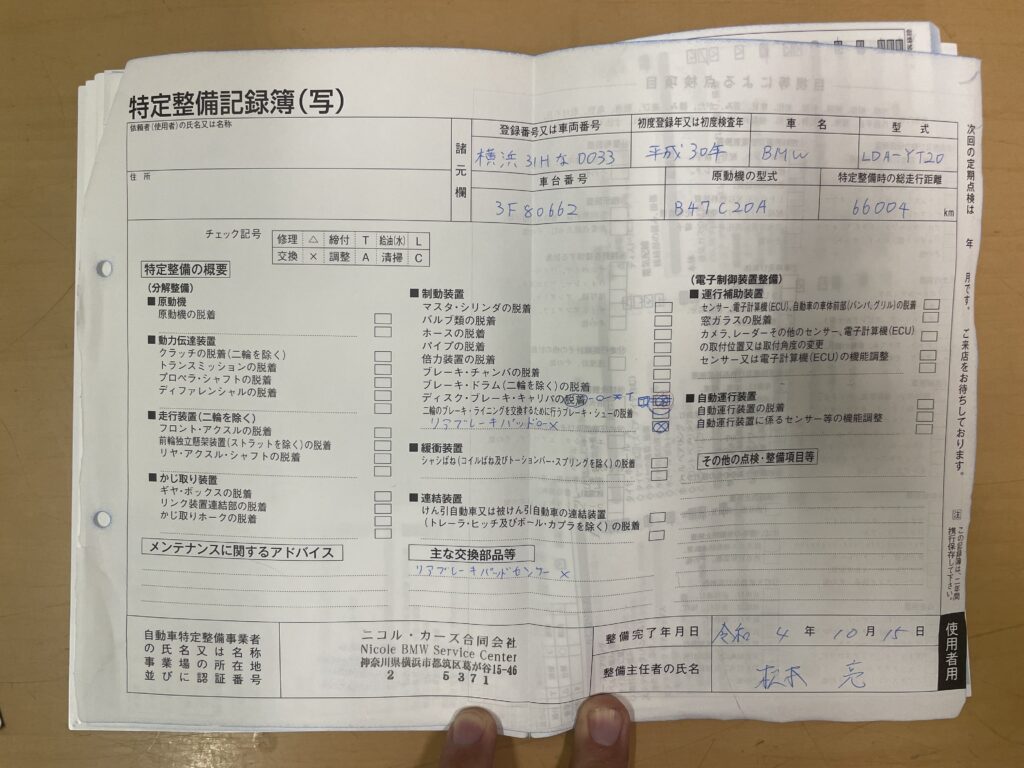 特定整備記録簿(写)
依頼者(使用者)の氏名又は名称
住所
諸元欄
登録番号又は車両番号
横浜 31H な 0033
初度登録年又は初度検査年
平成30年
車名
BMW
型式
LDA-YT20
車台番号
3F80662
原動機の型式
B47C20A
特定整備時の総走行距離
66004 km
チェック記号
修理 △ 締付 T 給油(水) L
交換 × 調整 A 清掃 C
特定整備の概要
(分解整備)
■原動機
原動機の脱着
■動力伝達装置
クラッチの脱着(二輪を除く)
トランスミッションの脱着
プロペラ・シャフトの脱着
ディファレンシャルの脱着
■走行装置(二輪を除く)
フロント・アクスルの脱着
前輪独立懸架装置(ストラットを除く)の脱着
リヤ・アクスル・シャフトの脱着
■かじ取り装置
ギヤ・ボックスの脱着
リンク装置連結部の脱着
かじ取りホークの脱着
■制動装置
マスタ・シリンダの脱着
バルブ類の脱着
ホースの脱着
パイプの脱着
倍力装置の脱着
ブレーキ・チャンバの脱着
ブレーキ・ドラム(二輪を除く)の脱着
ディスク・ブレーキ・キャリパの脱着
二輪のブレーキ・ライニングを交換するために行うブレーキ・シューの脱着
リアブレーキパッド
■緩衝装置
シャシばね(コイルばね及びトーションバー・スプリングを除く)の脱着
■連結装置
けん引自動車又は被けん引自動車の連結装置
(トレーラ・ヒッチ及びボール・カプラを除く)の脱着
(電子制御装置整備)
■運行補助装置
センサー、電子計算機(ECU)、自動車の車体前部(バンパ、グリル)の脱着
窓ガラスの脱着
カメラ、レーダーその他のセンサー、電子計算機(ECU)
の取付位置又は取付角度の変更
センサー又は電子計算機(ECU)の機能調整
■自動運行装置
自動運行装置の脱着
自動運行装置に係るセンサー等の機能調整
その他の点検・整備項目等
メンテナンスに関するアドバイス
主な交換部品等
リアブレーキパッドセンサー ×
自動車特定整備事業者
の氏名又は名称
事業場の所在地
並びに認証番号
ニコル・カーズ合同会社
Nicole BMW Service Center
神奈川県横浜市都筑区葛が谷15-46
2 5371
整備完了年月日
令和 4 年 10 月 15 日
整備主任者の氏名
松本 亮
次回の定期点検は 年 月です。ご来店をお待ちしております。
注 この記録簿は、二年間
携行保存して下さい。
使用者用